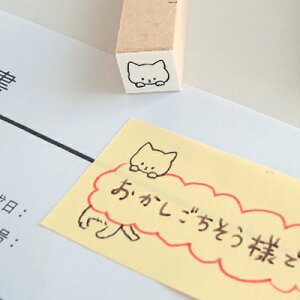 書
おかしごちそう様で
日:
号: